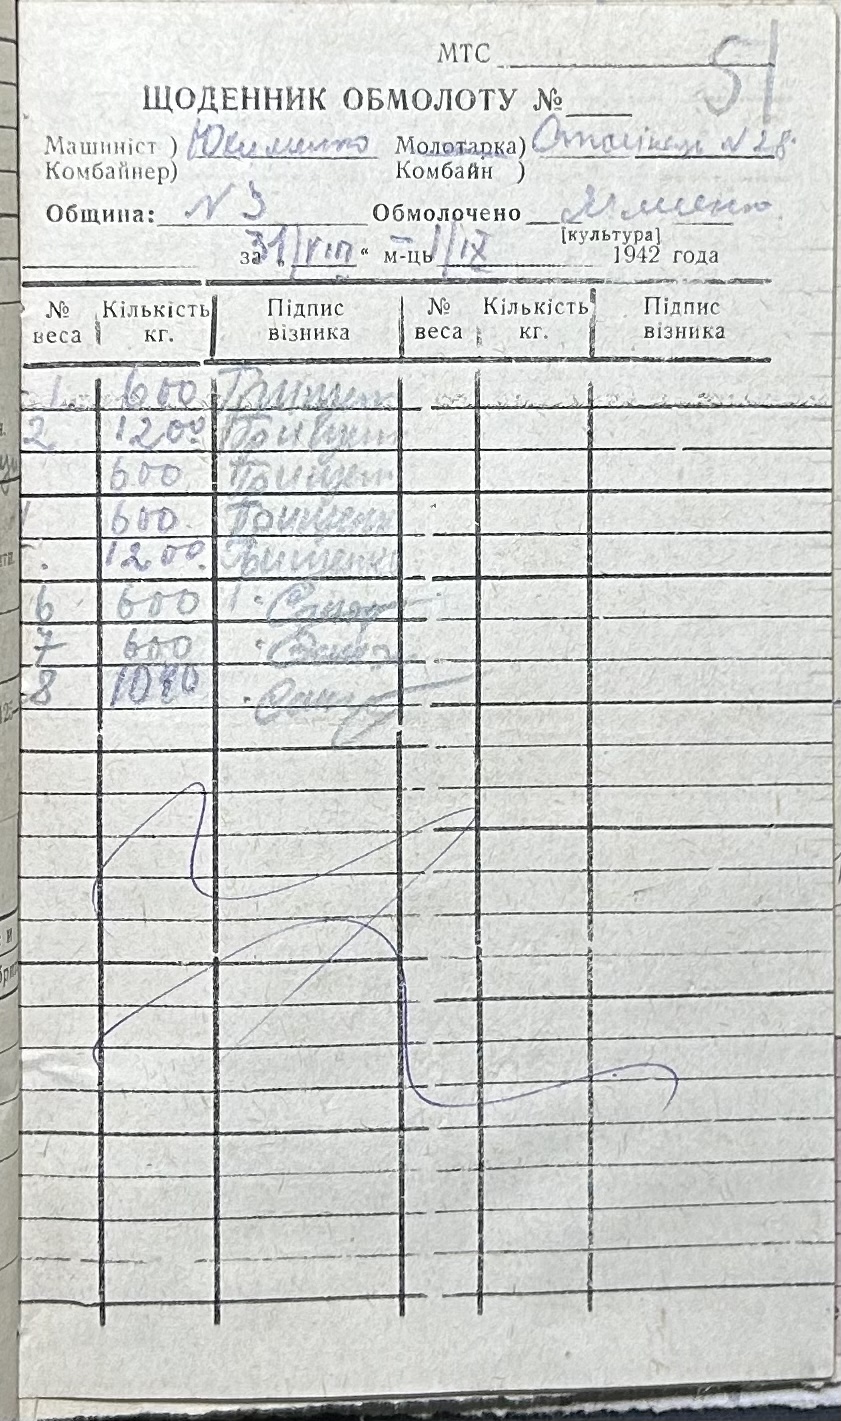 МТС
51
ЩОДЕННИК ОБМОЛОТУ №
Машиніст ) Юхименко Молотарка) Сталінець №28.
Комбайнер) Комбайн )
Община: №3 Обмолочено Ячменю
[культура]
за „31/VIII“ м-ць 1/IX 1942 года
№ веса Кількість кг. Підпис візника № веса Кількість кг. Підпис візника
1. 600 Грищенк
2 1200 Грищен
600 Грищен
600 Грищенк
1200. Грищенко
6 600
7 600
8 1080